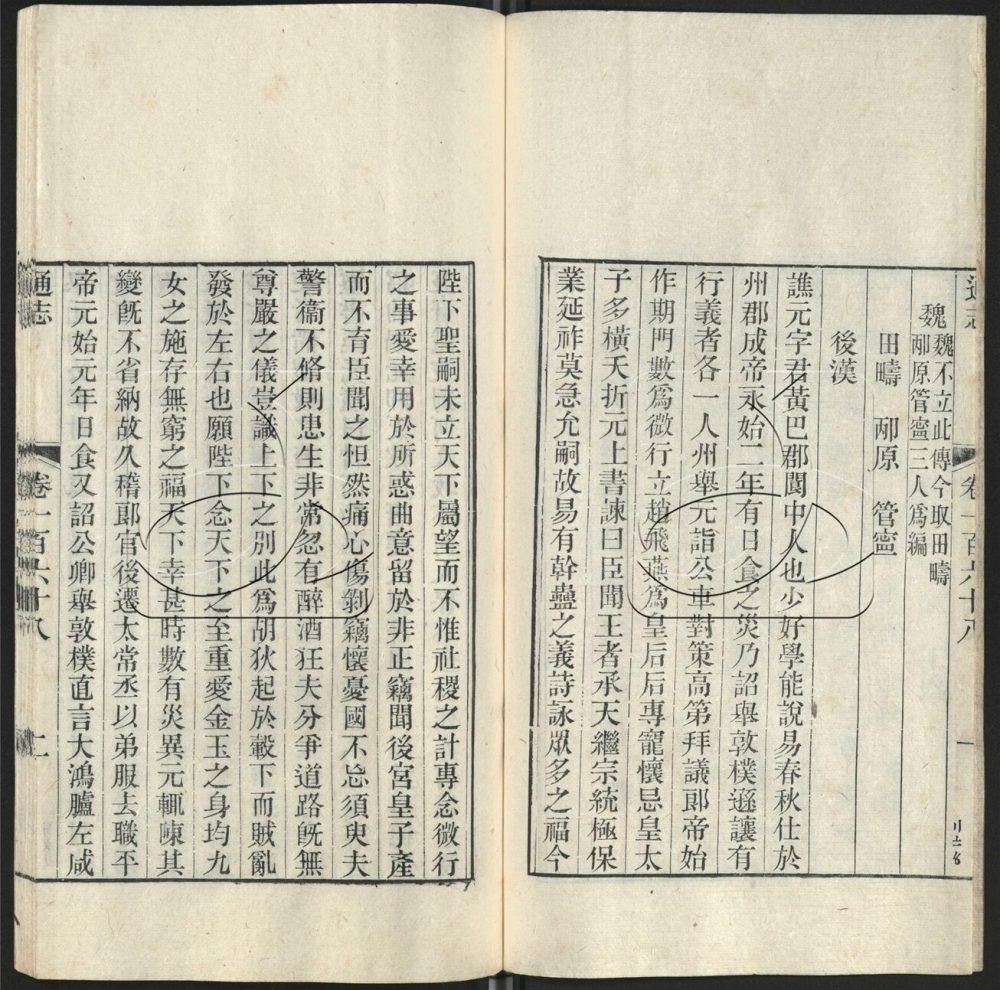 通志
卷一百六十八
一
魏魏不立此傳今取田疇
邴原管寍三人爲編
田疇　邴原　管寍
後漢
譙元字君黃巴郡閬中人也少好學能說易春秋仕於
州郡成帝永始二年有日食之災乃詔舉敦樸遜讓有
行義者各一人州舉元詣公車對策高第拜議郎帝始
作期門數爲微行立趙飛燕爲皇后后專寵懷忌皇太
子多橫夭折元上書諫曰臣聞王者承天繼宗統極保
業延祚莫急允嗣故易有幹蠱之義詩詠眾多之福今
陛下聖嗣未立天下屬望而不惟社稷之計專念微行
之事愛幸用於所惑曲意留於非正竊聞後宮皇子產
而不育臣聞之怛然痛心傷剝竊懷憂國不忘須臾夫
警衞不脩則患生非常忽有醉酒狂夫分爭道路旣無
尊嚴之儀豈識上下之別此爲胡狄起於轂下而賊亂
發於左右也願陛下念天下之至重愛金玉之身均九
女之施存無窮之福天下幸甚時數有災異元輒陳其
變旣不省納故久稽郎官後遷太常丞以弟服去職平
帝元始元年日食又詔公卿舉敦樸直言大鴻臚左咸
通志
卷一百六十八
二